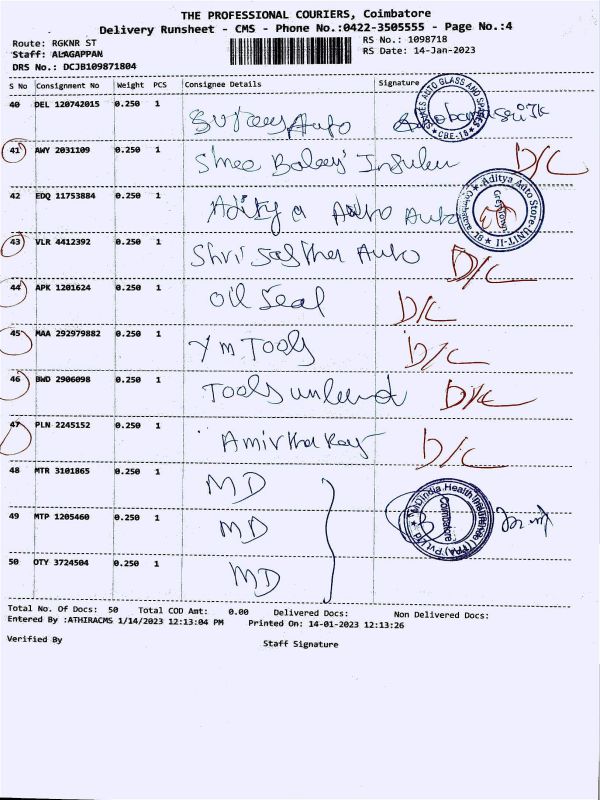 THE PROFESSIONAL COURIERS, Coimbatore
Delivery Runsheet - CMS - Phone No.:0422-3505555 - Page No.:4
Route: RGKNR ST RS No.: 1098718
Staff: ALAGAPPAN RS Date: 14-Jan-2023
DRS No.: DCJB109871804
S No Consignment No Weight PCS Consignee Details Signature
40 DEL 120742015 0.250 1 Auto
41 AWY 2031109 0.250 1 Shree Balaji D/C
42 EDQ 11753884 0.250 1 Aditya Auto Auto
43 VLR 4412392 0.250 1 Shri Sastha Auto D/C
44 APK 1201624 0.250 1 Oil Seal D/C
45 MAA 292979882 0.250 1 YM Tools D/C
46 BWD 2906098 0.250 1 Tools D/C
47 PLN 2245152 0.250 1 Amirtha D/C
48 MTR 3101865 0.250 1 MD
49 MTP 1205460 0.250 1 MD
50 OTY 3724504 0.250 1 MD
AUTO GLASS AND
CBE-18
Aditya Auto Store-UNIT-II
MDIndia Health Insurance (TPA) Pvt Ltd
Coimbatore
Total No. Of Docs: 50 Total COD Amt: 0.00 Delivered Docs: Non Delivered Docs:
Entered By :ATHIRACMS 1/14/2023 12:13:04 PM Printed On: 14-01-2023 12:13:26
Verified By Staff Signature